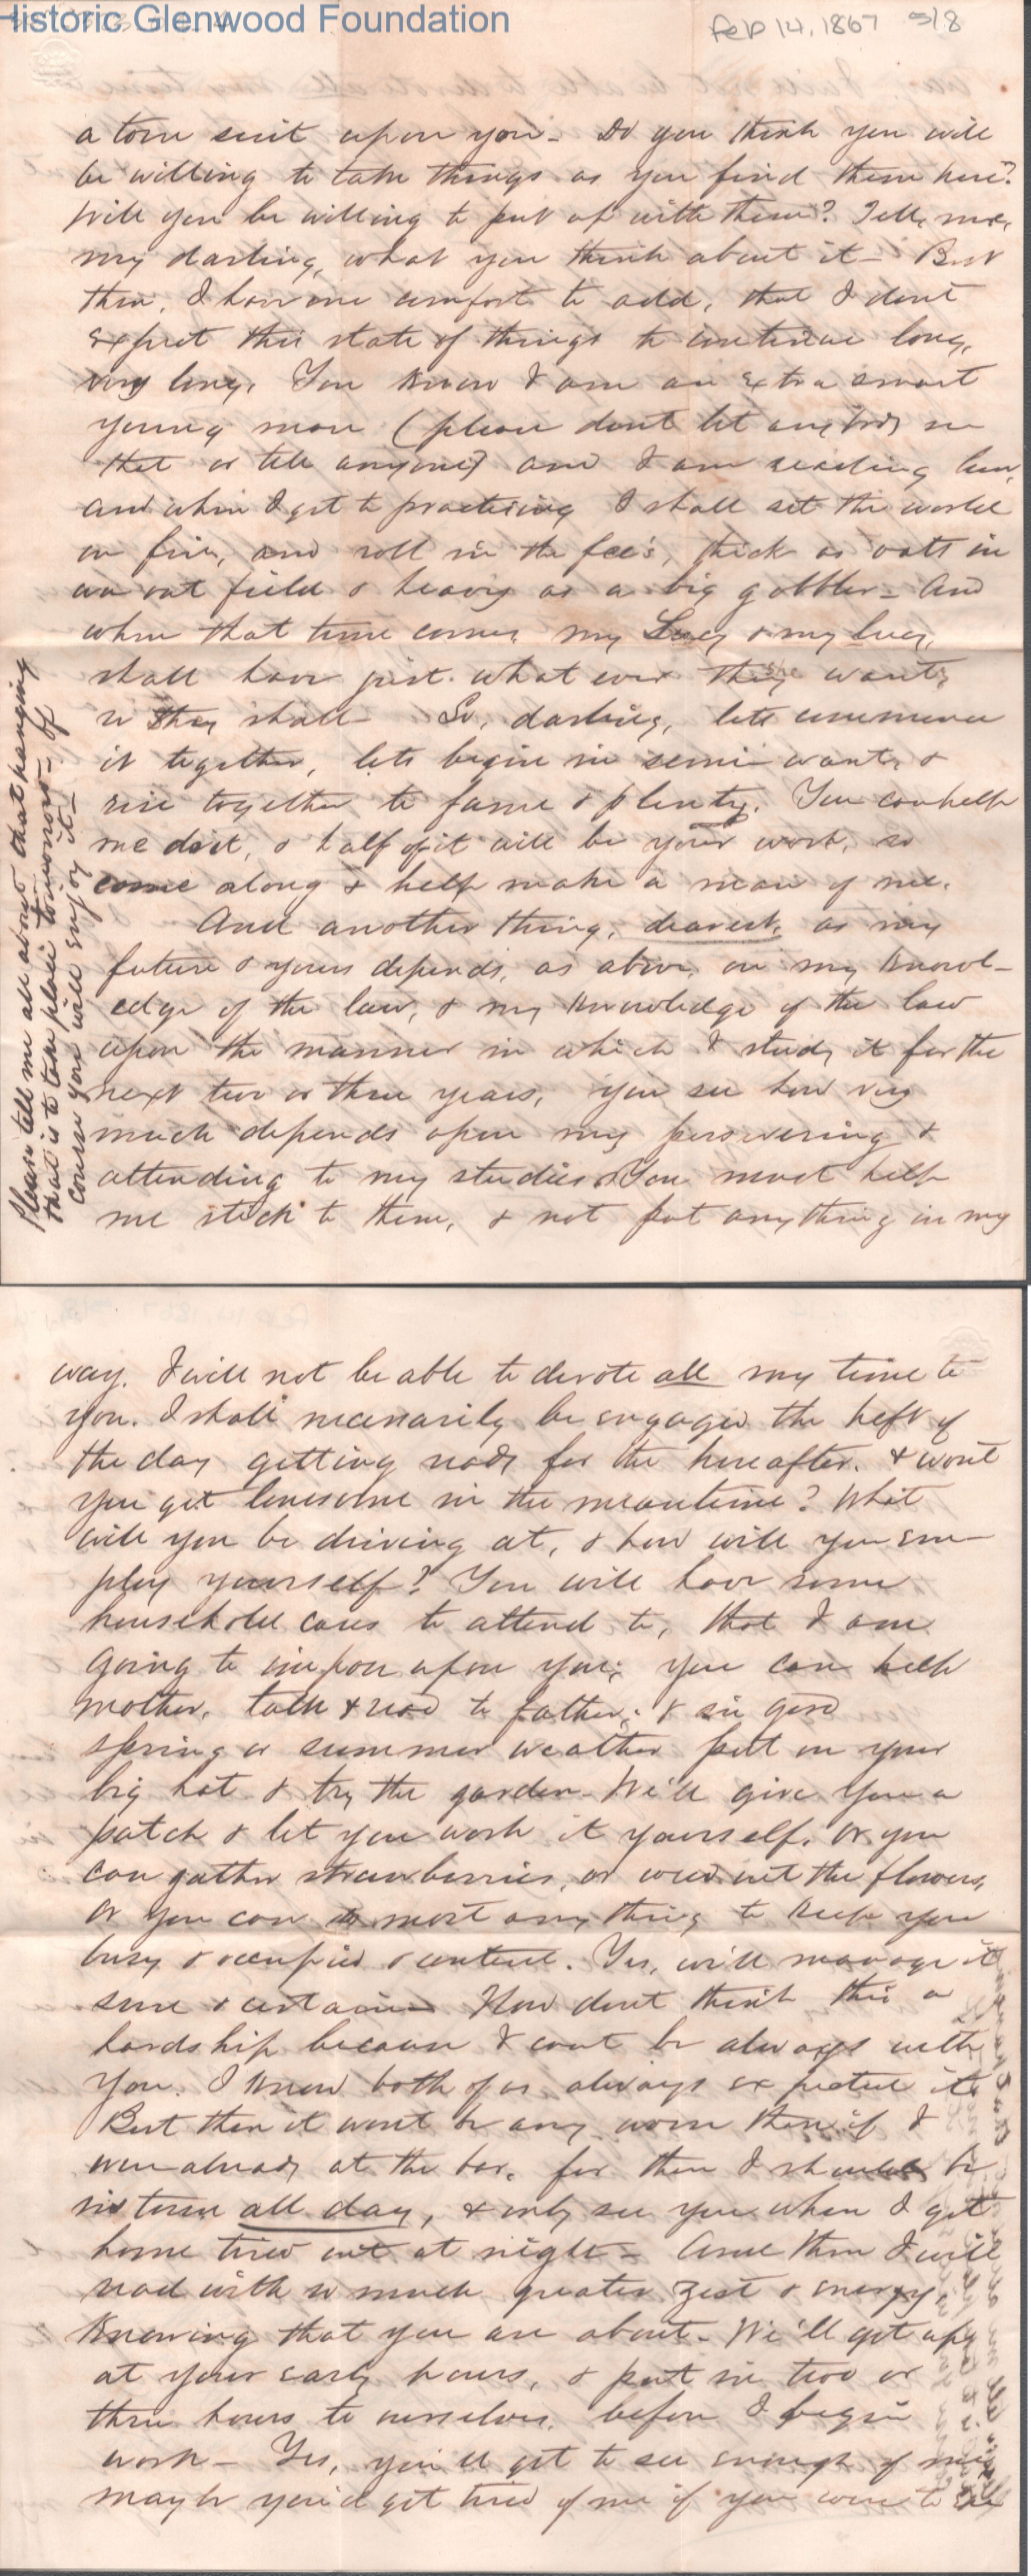 Historic Glenwood Foundation
Feb 14, 1867 5/8
a torn suit upon you - Do you think you will
be willing to take things as you find them here?
Will you be willing to put up with them? Tell me,
my darling, what you think about it - But
then, I have one comfort to add, that I dont
expect this state of things to continue long,
very long. You know I am an extra smart
young man (please dont let anybody see
that or tell anyone) and I am reading law,
and when I get to practicing I shall set the world
on fire, and roll in the fee's, thick as oats in
an oat field & heavy as a big gobbler - And
when that time comes my Lucy & my Lucy,
shall have just what ever they wants,
so they shall - So, darling, lets commence
it together, lets begin in semi want, &
rise together to fame & plenty. You can help
me do it, & half of it will be your work, so
come along & help make a man of me.
And another thing, dearest, as my
future & yours depends, as above, on my knowl-
edge of the law, & my knowledge of the law
upon the manner in which I study it for the
next two or three years, you see how very
much depends upon my persevering &
attending to my studies. You must help
me stick to them, & not put anything in my
Please tell me all about that hanging
that is to take place tomorrow - Of
course you will enjoy it -
way. I will not be able to devote all my time to
you. I shall necessarily be engaged the heft of
the day getting ready for the hereafter. & wont
you get lonesome in the meantime? What
will you be driving at, & how will you em-
ploy yourself? You will have some
household cares to attend to, that I am
going to impose upon you; you can help
mother, talk & read to father; & in good
spring or summer weather put on your
big hat & try the garden - We'll give you a
patch & let you work it yourself. Or you
can gather strawberries, or weed out the flowers,
or you can do most any thing to keep you
busy & occupied & content. Yes, we'll manage it
sure & certain - Now dont think this a
hardship because I cant be always with
you. I know both of us always expected it.
But then it wont be any worse than if I
were already at the bar, for then I should be
in town all day, & only see you when I get
home tired out at night - And then I will
read with so much greater zest & energy,
knowing that you are about - We'll get up
at your early hours, & put in two or
three hours to ourselves, before I begin
work - Yes, you'll get to see enough of me,
maybe you'd get tired of me if you were to